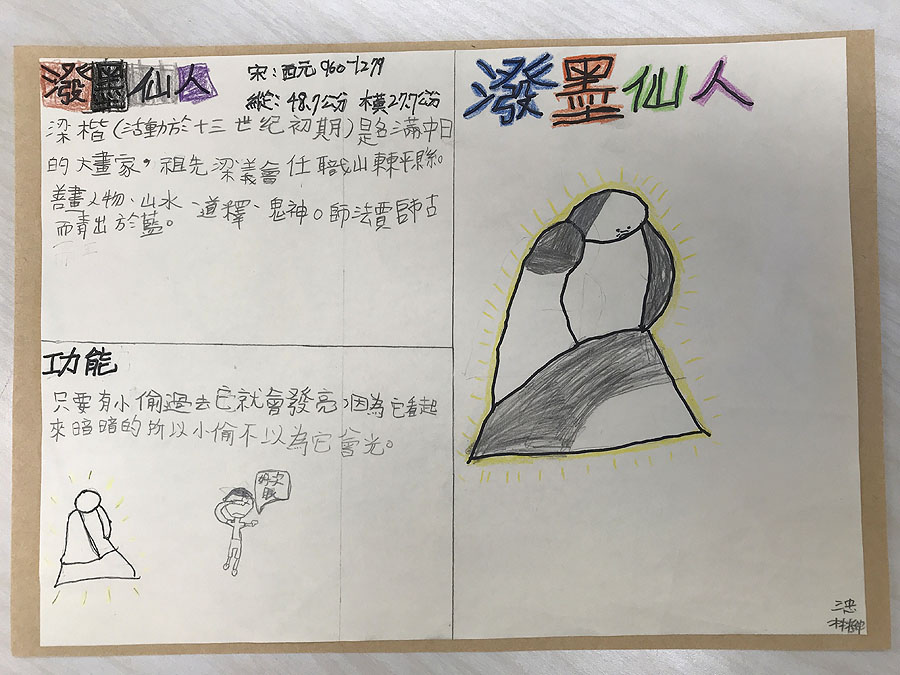 潑墨仙人
宋：西元960-1279
縱：48.7公分 橫27.7公分
梁楷(活動於十三世紀初期)是名滿中日
的大畫家，祖先梁義曾任職山東平縣。
善畫人物、山水、道釋、鬼神。師法賈師古
而青出於藍。
功能
只要有小偷過去它就會發亮，因為它看起
來暗暗的所以小偷不以為它會光。
潑墨仙人
三忠